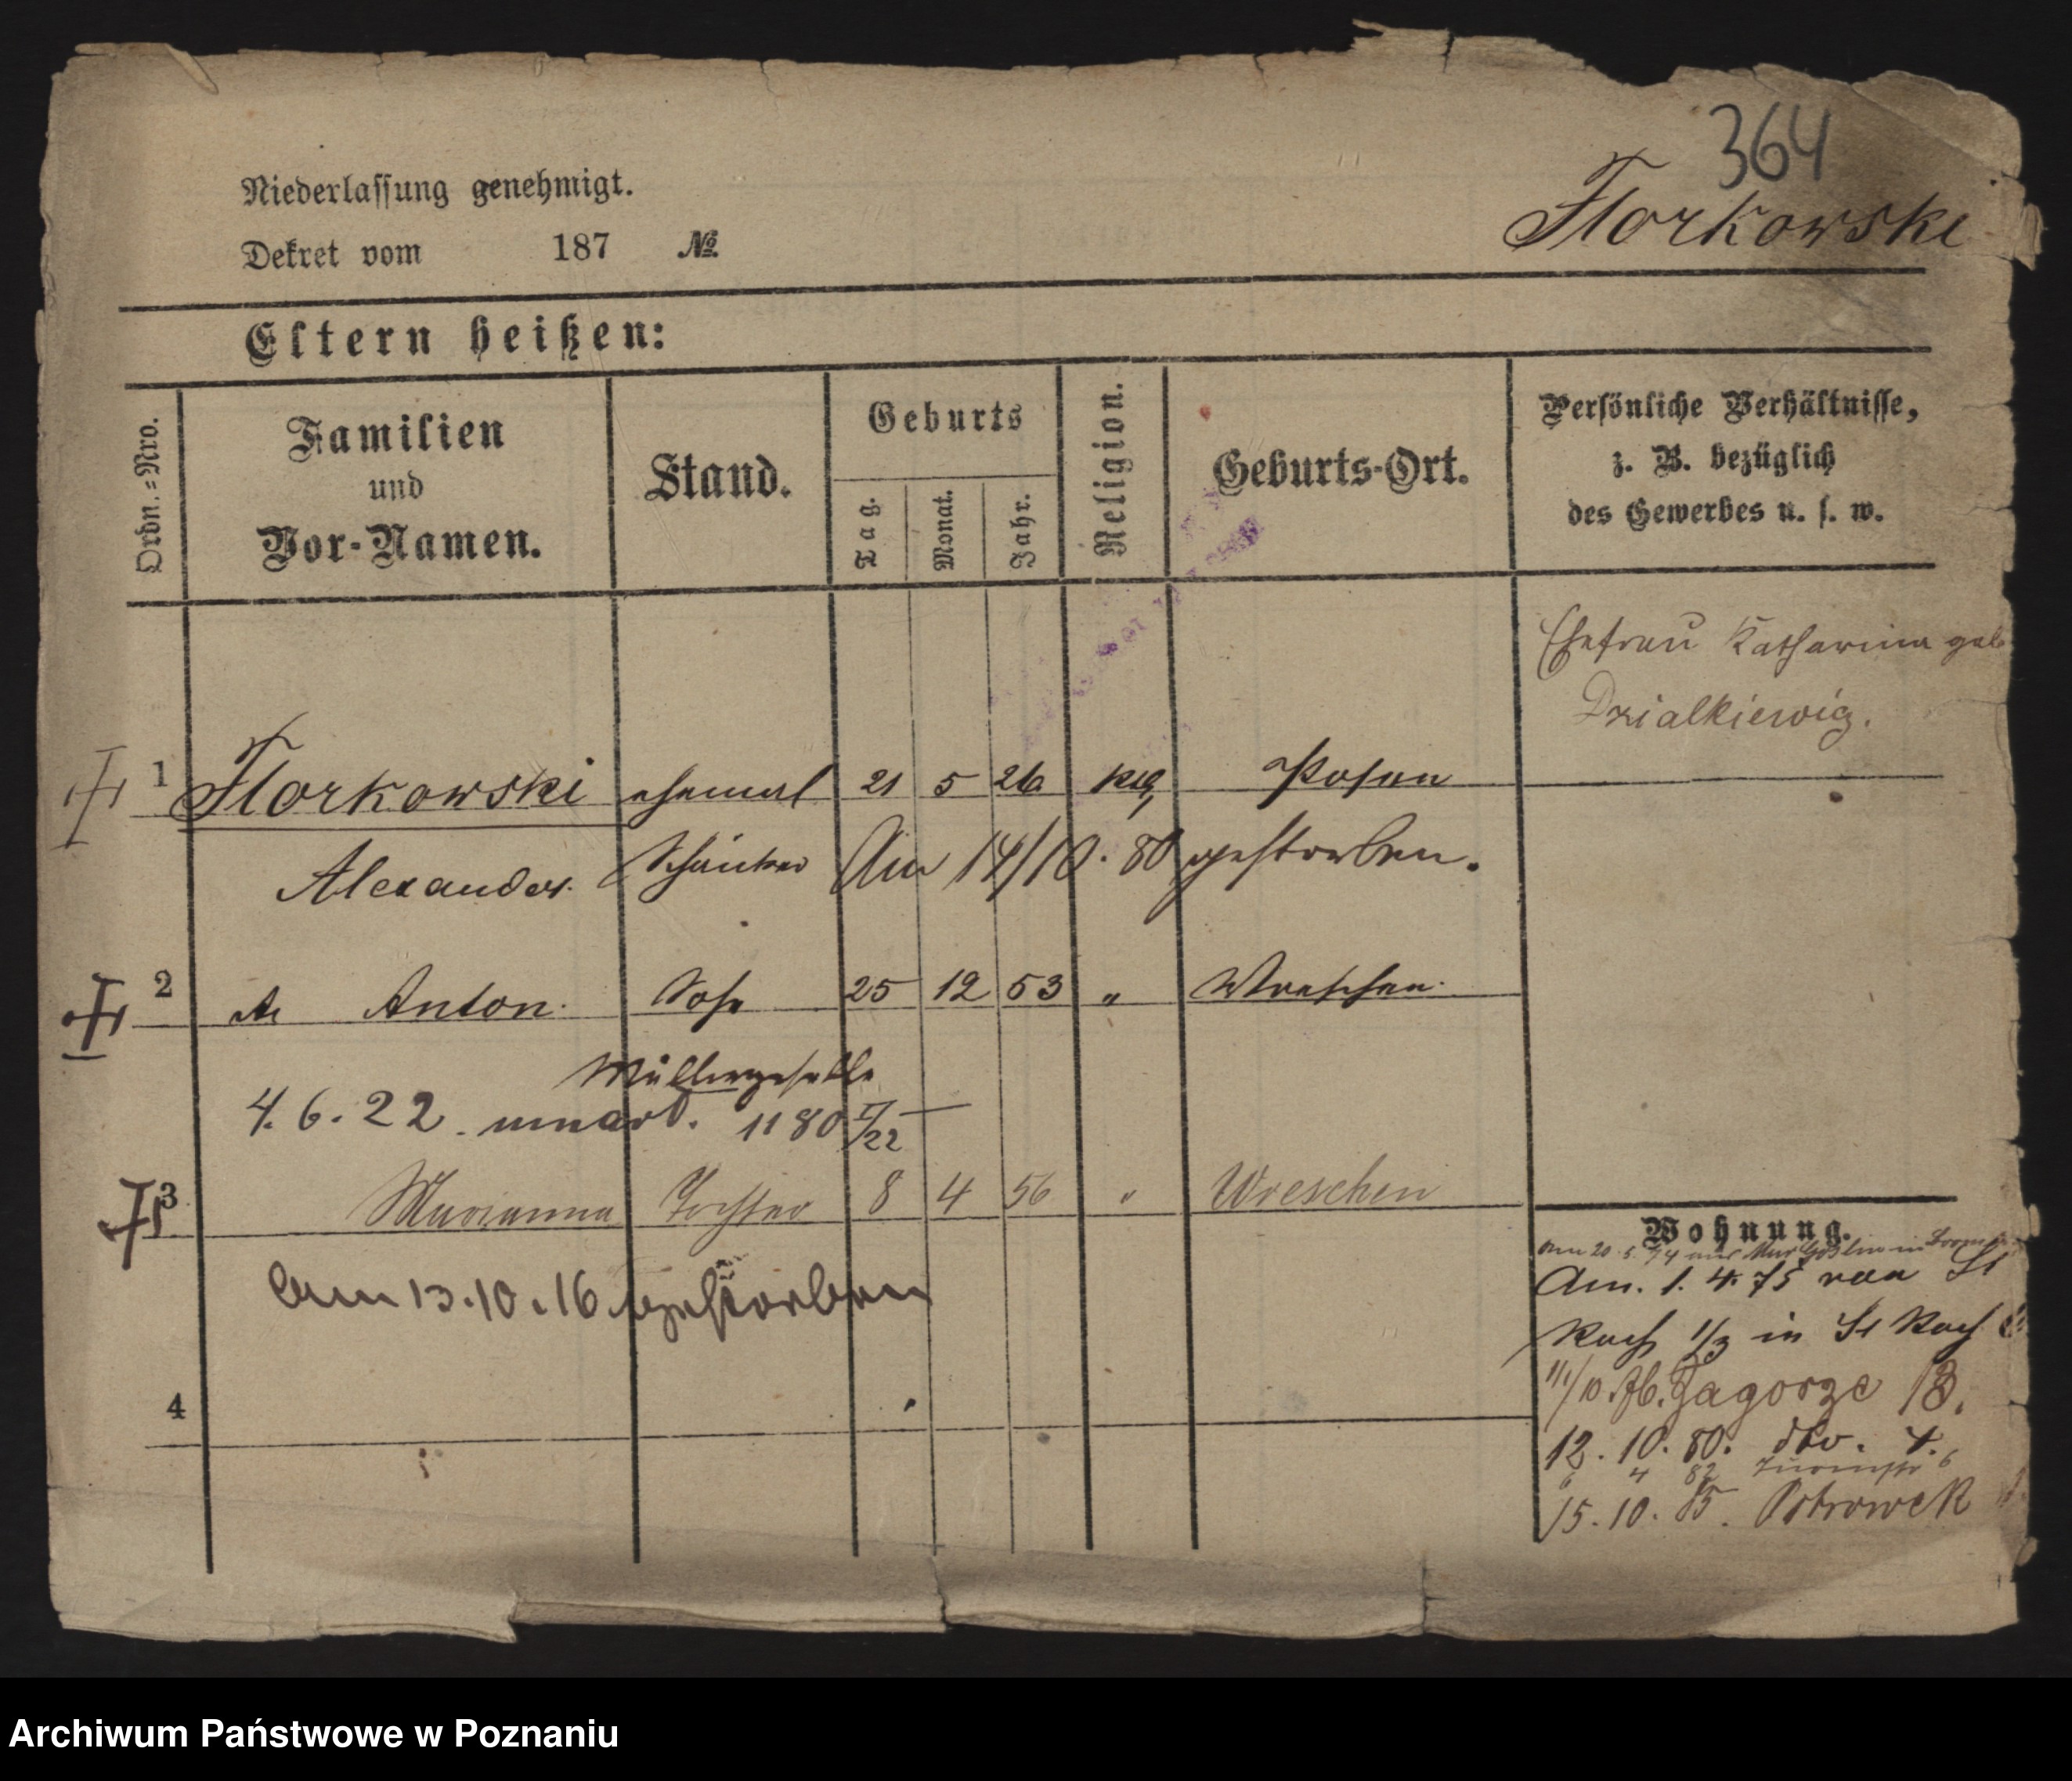 364
Florkowski
Niederlassung genehmigt.
Dekret vom 187 №
Eltern heißen:
Ordn.=Nro.
Familien
und
Vor-Namen.
Stand.
Geburts
Tag.
Monat.
Jahr.
Religion.
Geburts-Ort.
Persönliche Verhältnisse,
z. B. bezüglich
des Gewerbes u. s. w.
Ehefrau Katharina geb
Dzialkiewicz.
1 Florkowski ehemal 21 5 26 kath Posen
Alexander Schänker Am 14/10. 80 gestorben.
2 Anton Sohn 25 12 53 " Wreschen
Müllergeselle
4. 6. 22. umart. 1180 I/22
3 Marianna Tochter 8 4 56 " Wreschen
Am 13.10.16 gestorben
4
Wohnung.
Am 20. 5. 74 aus Mur Goslin in
Am. 1. 4. 75 von St
Roch 1/3 in St Roch
/10. Zagorze 13.
12. 10. 80. dto. 4.
6 4 82 Thurmstr 6
15. 10. 85. Ostrowek
Archiwum Państwowe w Poznaniu